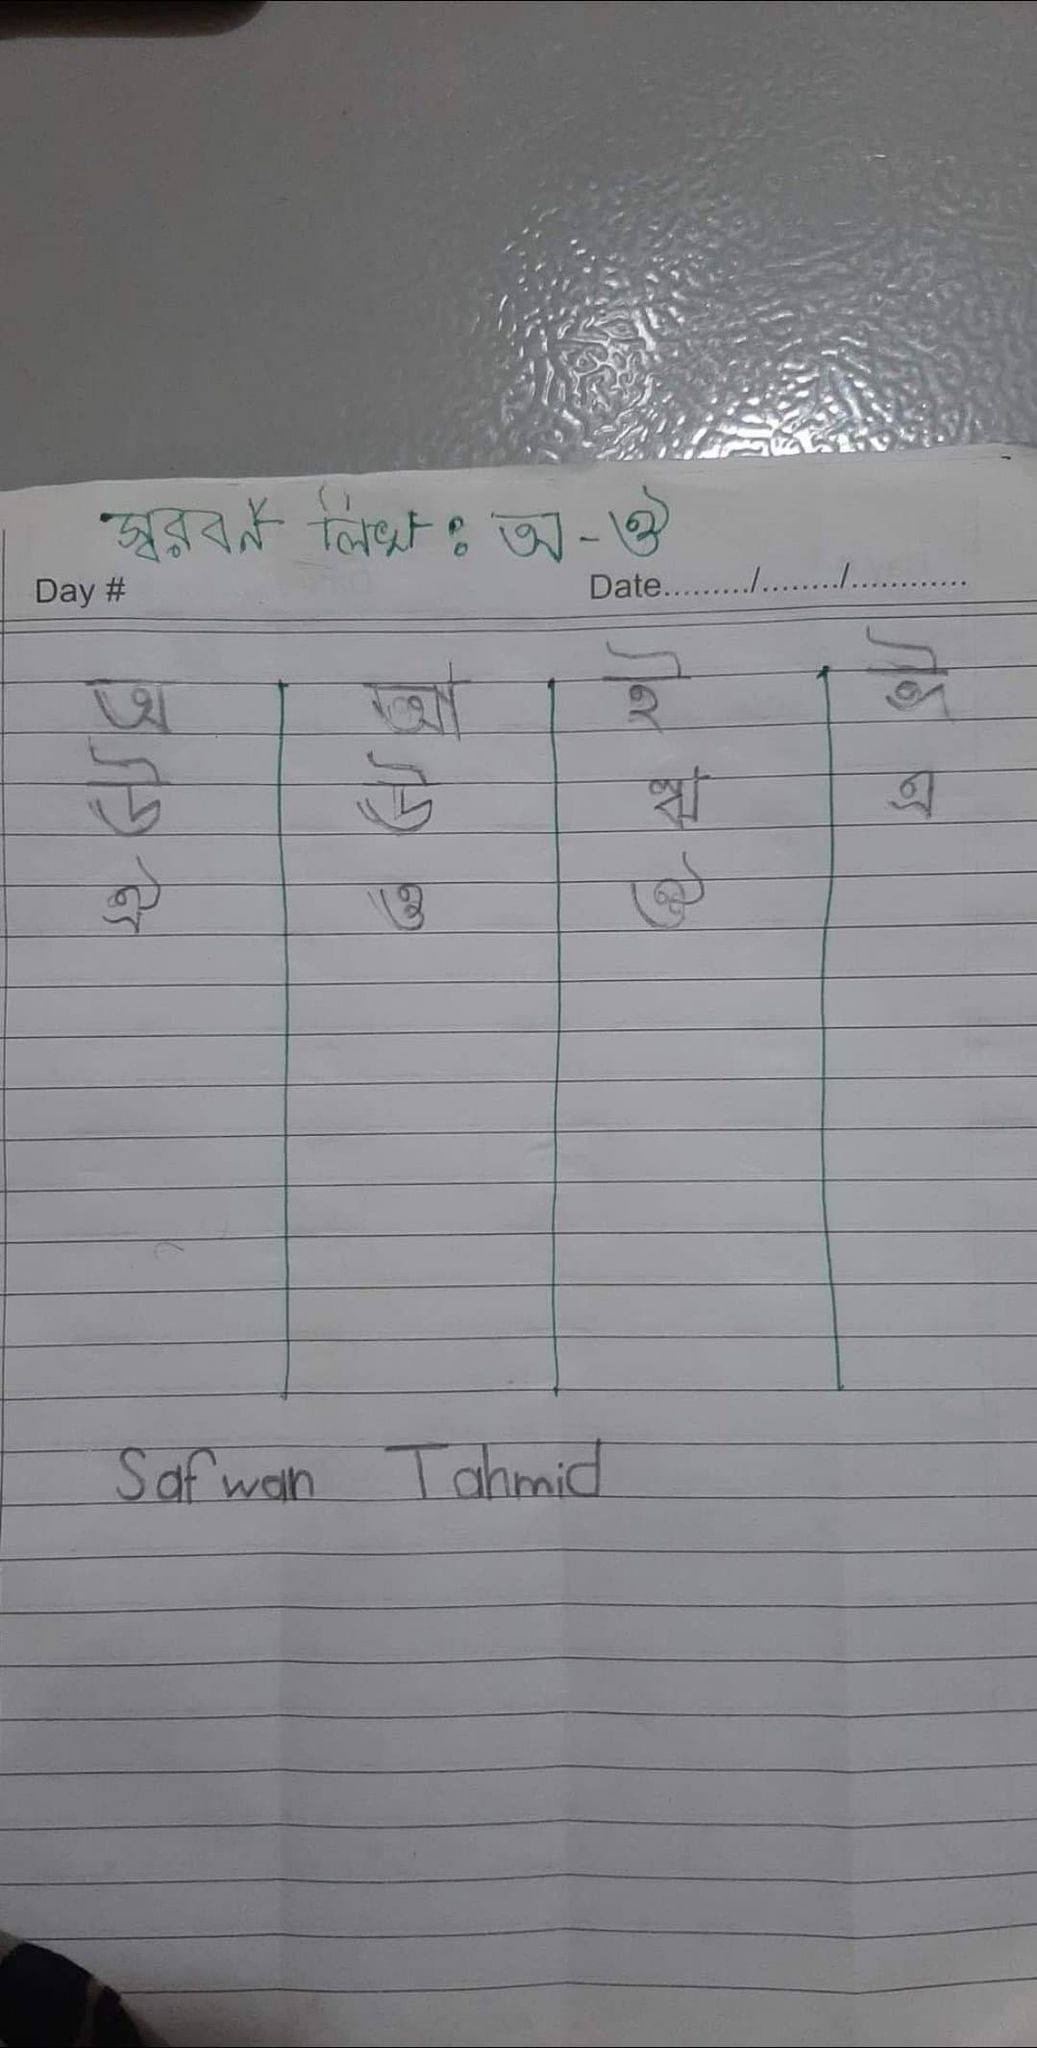 স্বরবর্ন লিখ : অ - ঔ
Day # Date........./......../............
অ আ ই ঈ
উ ঊ ঋ এ
ঐ ও ঔ
Safwan Tahmid